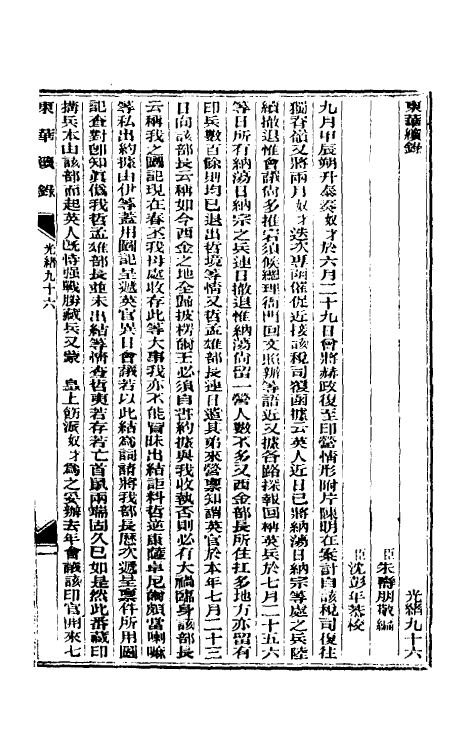 東華續錄
光緒九十六
臣朱壽朋敬編
臣沈彭年恭校
九月甲辰朔升泰奏奴才於六月二十九日會將赫政復至印營情形附片陳明在案計自該稅司復往
獨脊嶺又將兩月奴才迭次專函催促近接該稅司復函據云英人近日已將納蕩日納宗等處之兵陸
續撤退惟會議尙多推宕須候總理衙門回文照辦等語近又據各路探報回稱英兵於七月二十五六
等日所有納蕩日納宗之兵連日撤退惟納蕩尙留一營人數不多又西金部長所住扛多地方亦留有
印兵數百餘則均已退出哲境等情又哲孟雄部長連日遣其弟來營稟知謂英官於本年七月二十三
日向該部長云稱如今西金之地全歸披楞爾王必須自書約據與我收執否則必有大禍臨身該部長
云稱我之圖記現在春丕我母處收存此等大事我亦不能冒昧出結詎料哲逆康薩卓尼爾頗當喇嘛
等私出約據由伊等蓋用圖記呈遞英官異日會議若以此結爲詞請將我部長歷次遞呈稟件所用圖
記查對卽知眞僞我哲孟雄部長並未出結等情查哲夷若存若亡首鼠兩端固久已如是然此番藏印
搆兵本由該部而起英人旣恃强戰勝藏兵又蒙　皇上飭派奴才爲之妥辦去年會議該印官開來七
東華續錄
光緒九十六